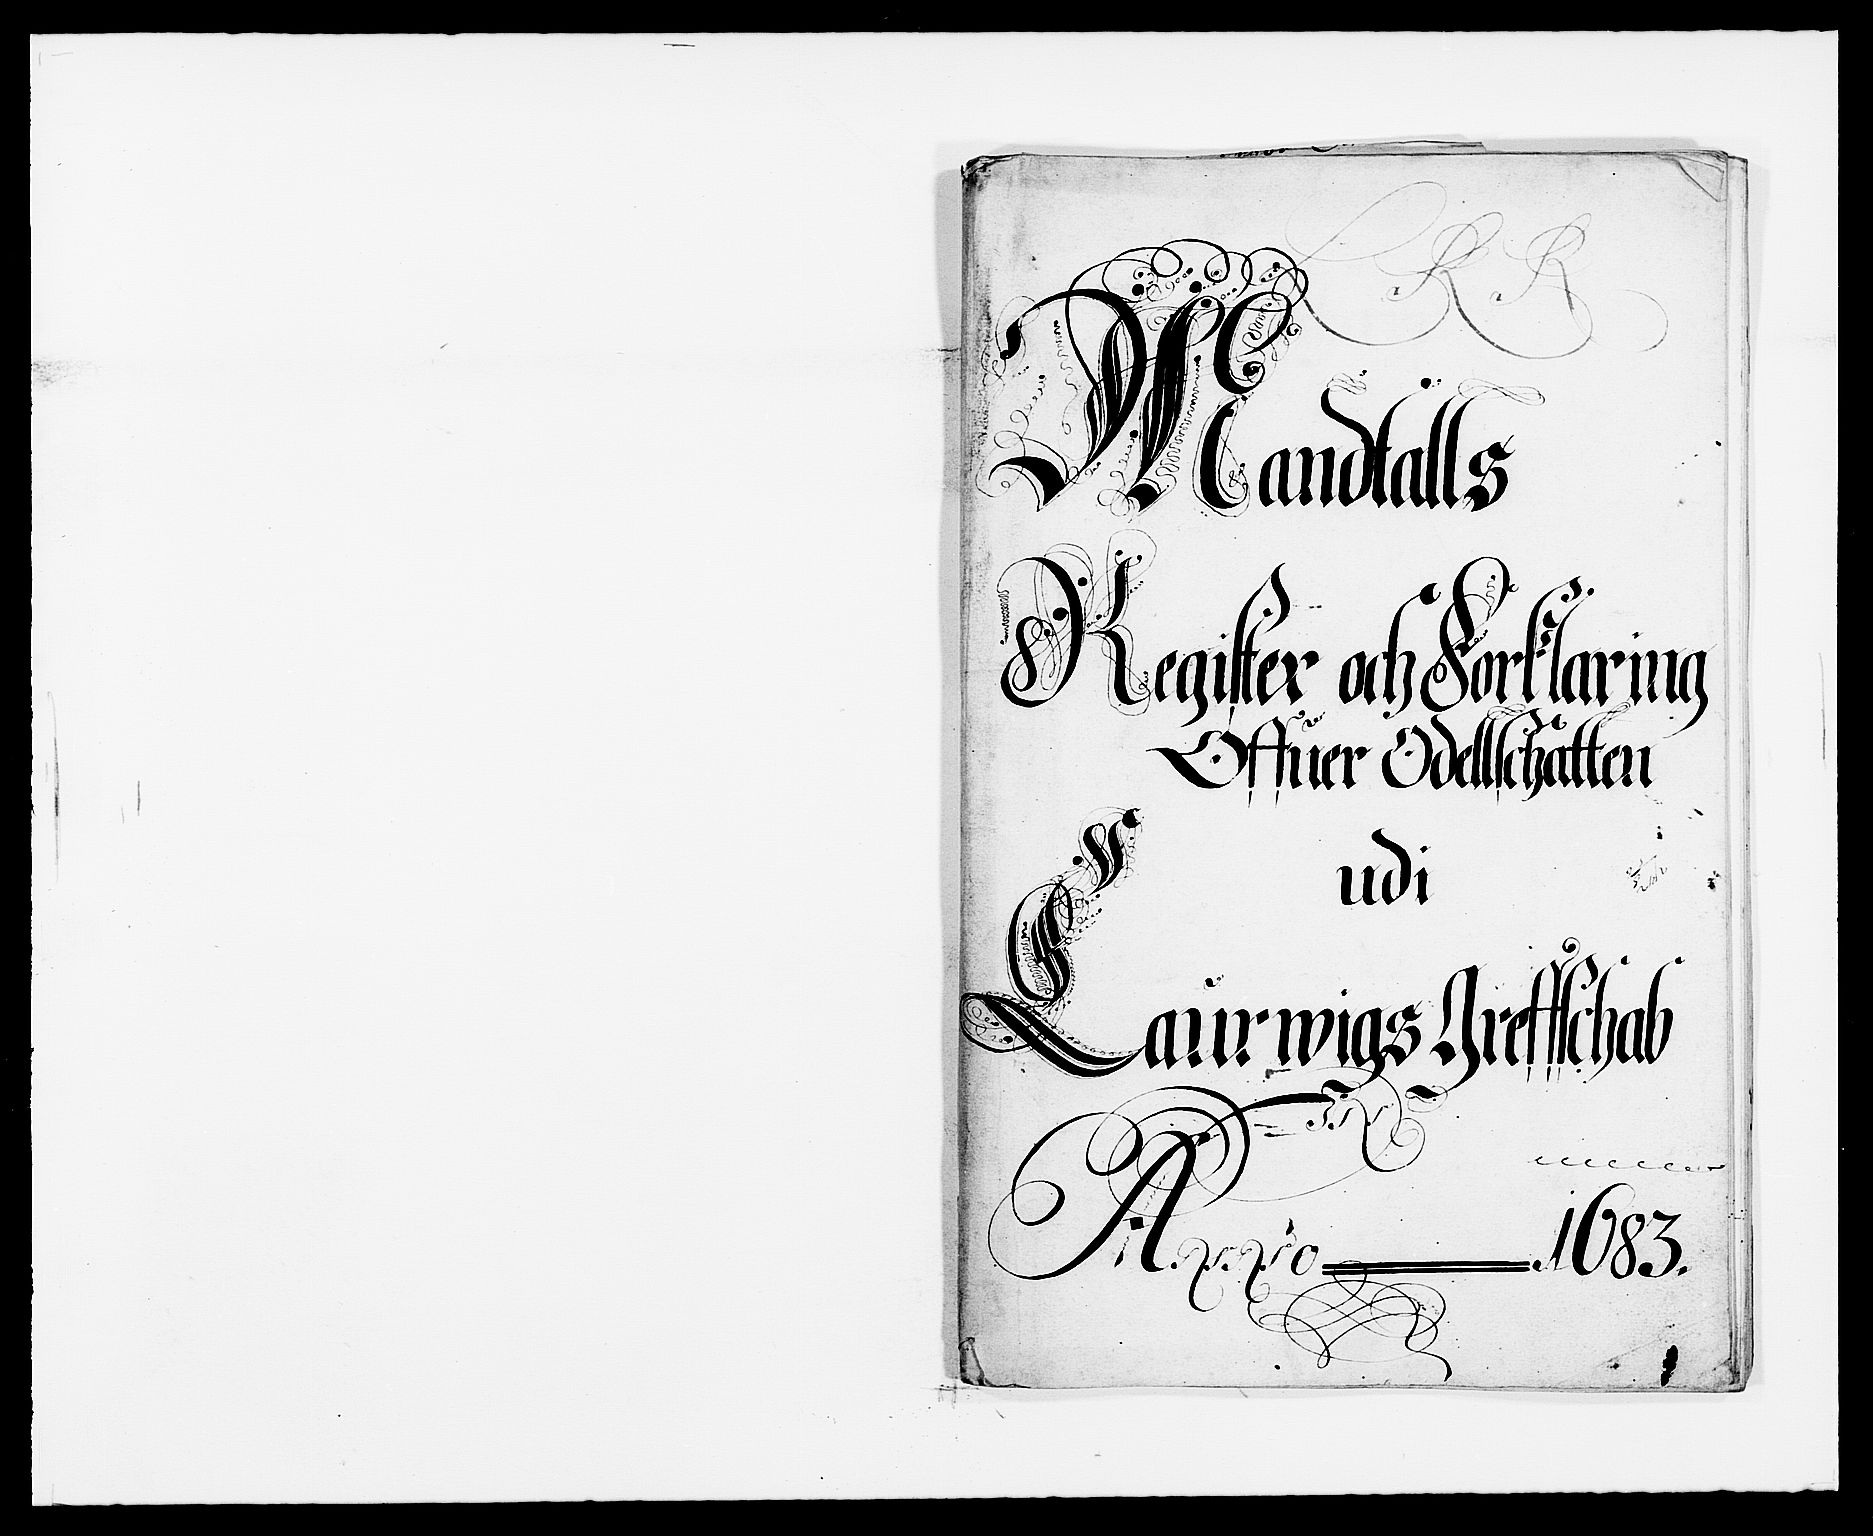 Mandtalls
Register och Forklaring
Offuer Odellschatten
udi
Laurwigs Greffschab
Anno 1683.